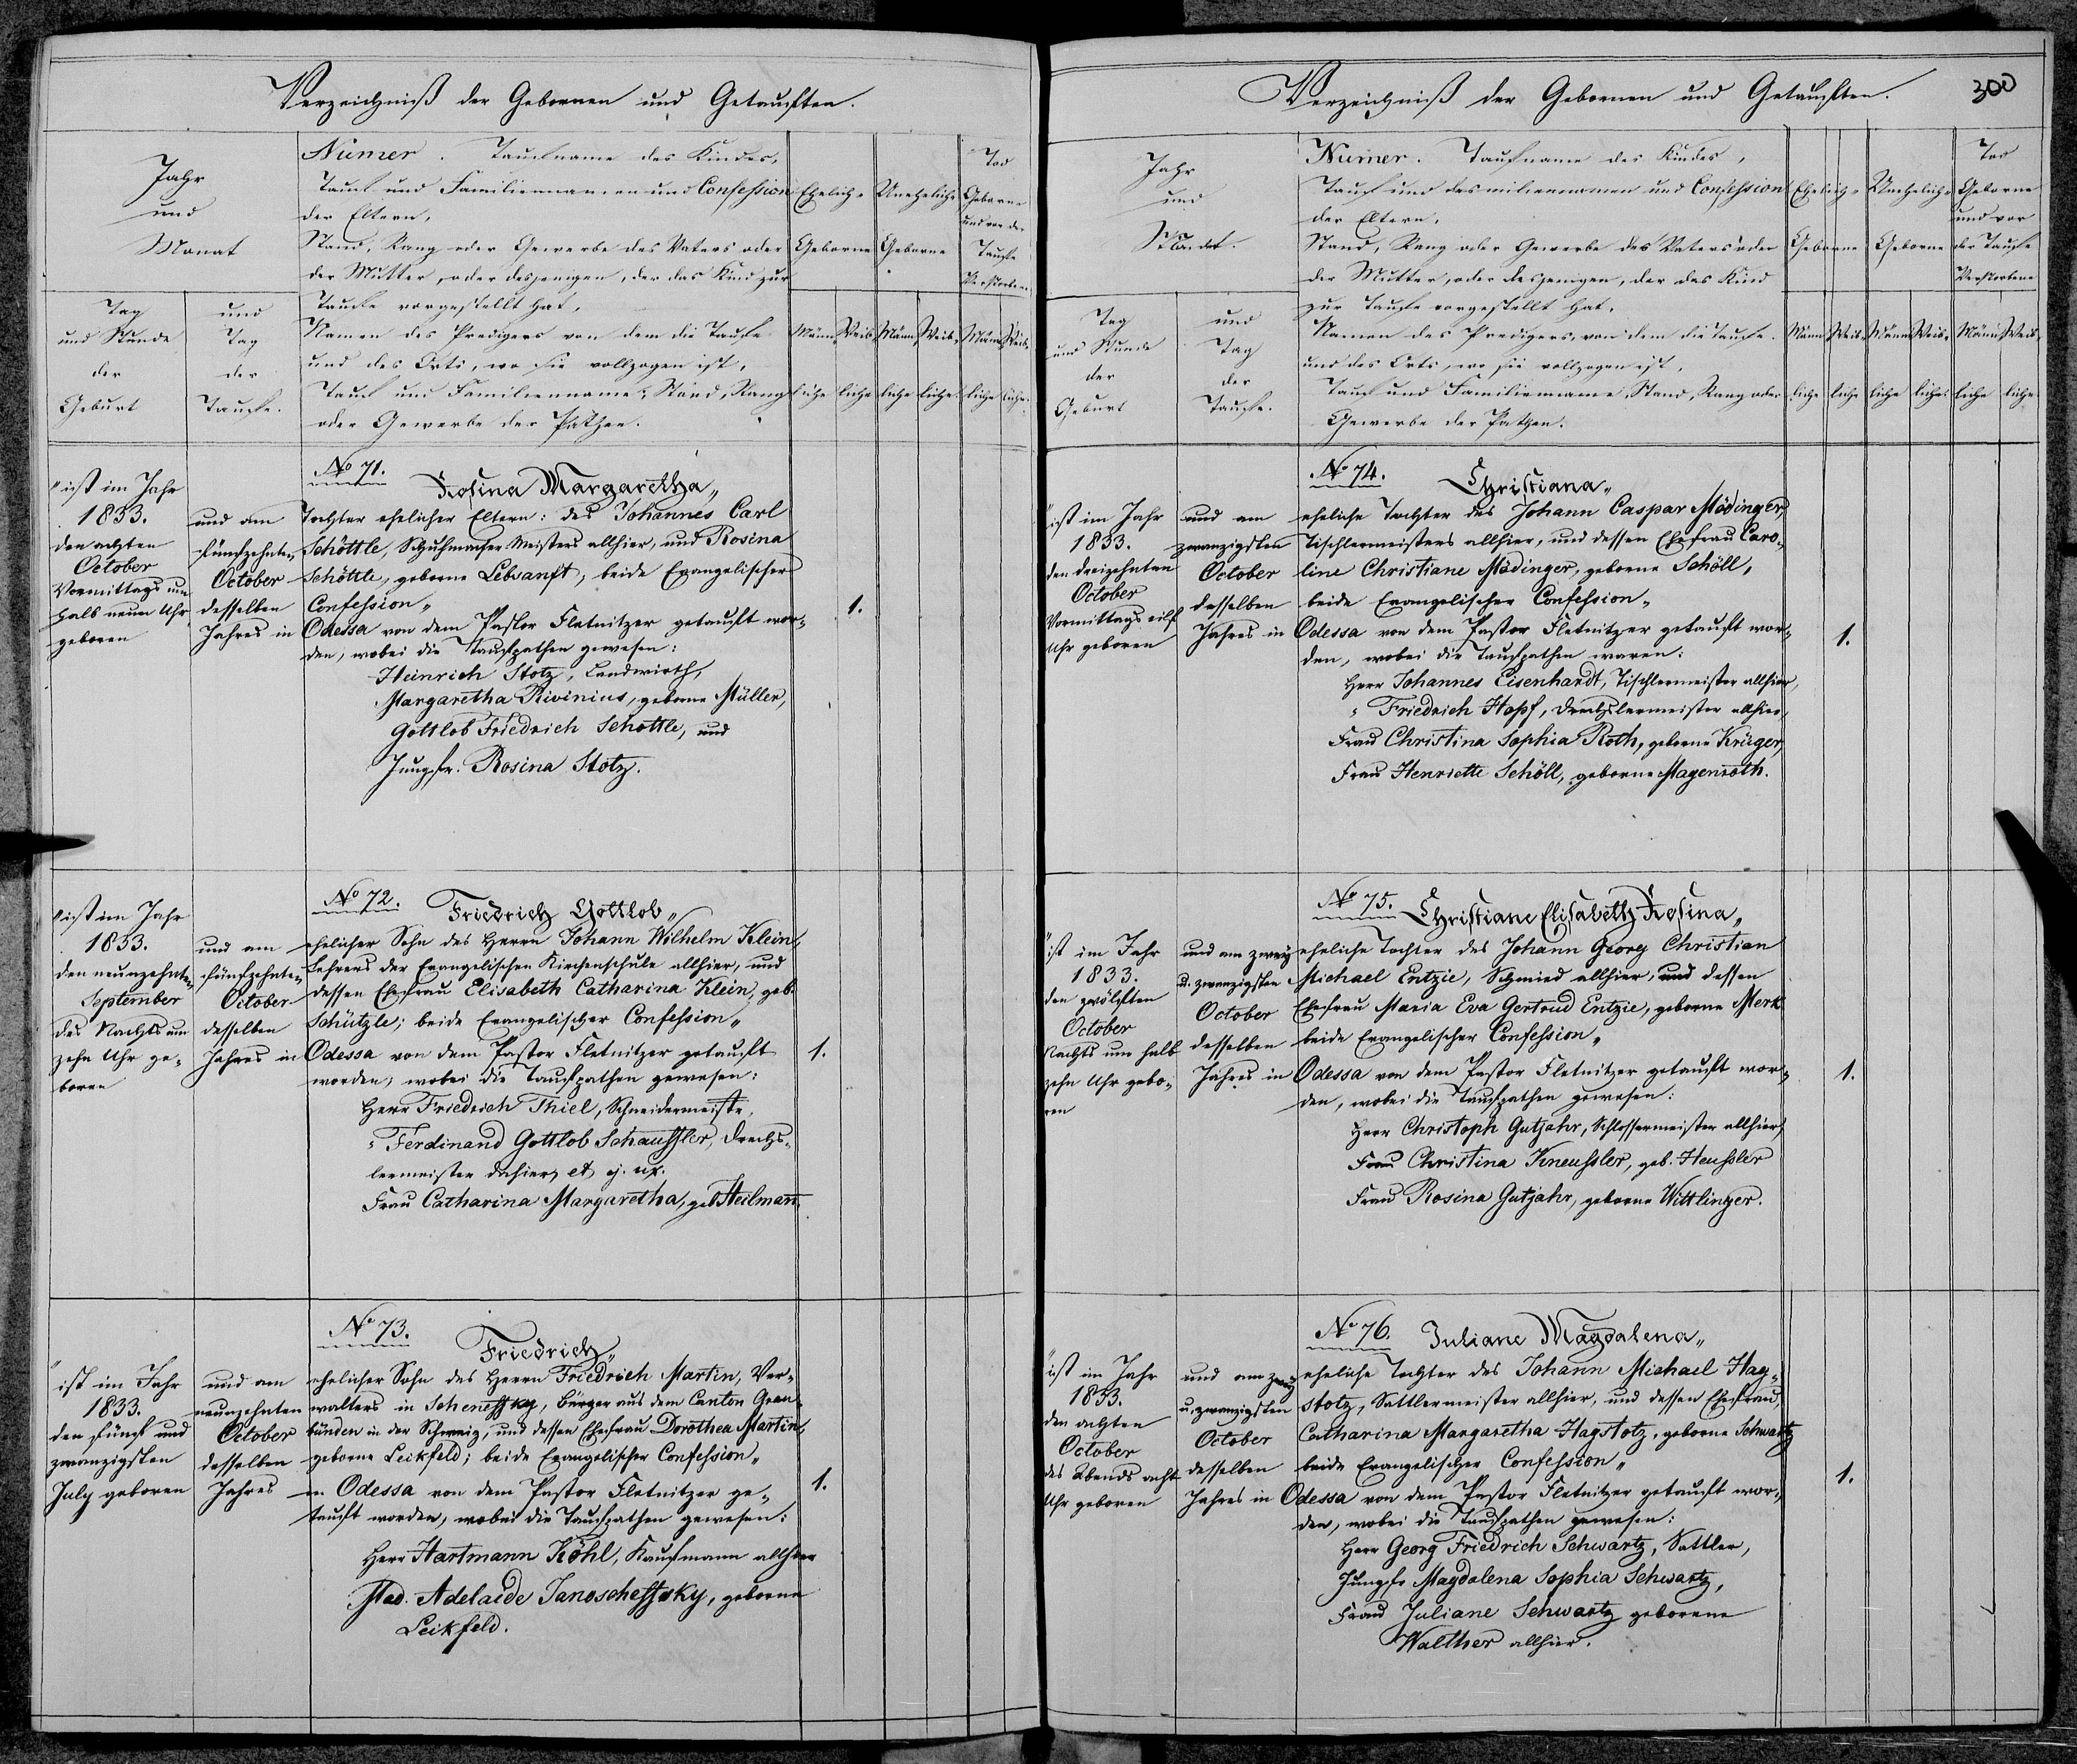 Verzeichniß der Gebornen und Getauften.
Jahr
und
Monat
Tag
und Stunde
der
Geburt
und
Tag
der
Taufe.
Numer. Taufname des Kindes,
Tauf und Familiennamen und Confession
der Eltern,
Stand, Rang oder Gewerbe des Vaters oder
der Mutter, oder desjenigen, der das Kind zur
Taufe vorgestellt hat,
Namen des Predigers von dem die Taufe
und des Orts, wo sie vollzogen ist,
Tauf und Familienname, Stand, Rang
oder Gewerbe der Pathen.
Ehelich-
Geborne
Unehelich-
Geborne
Tod
Geborne
und vor der
Taufe
Verstorbene
Männ- Weib- Männ- Weib- Männ- Weib-
liche liche liche liche liche liche
ist im Jahr
1833.
den achten
October
Vormittags um
halb neun Uhr
geboren
und am
fünfzehnten
October
desselben
Jahres in
No 71.
Rosina Margaretha,,
Tochter ehelicher Eltern: des Johannes Carl
Schöttle, Schuhmacher Meisters allhier, und Rosina
Schöttle, geborne Lebsanft, beide Evangelischer
Confession,,
Odessa von dem Pastor Fletnitzer getauft wor-
den, wobei die Taufpathen gewesen:
Heinrich Stotz, Landwirth,
Margaretha Rivinius, geborne Müller,
Gottlob Friedrich Schöttle, und
Jungfr. Rosina Stotz.
1.
ist im Jahr
1833.
den neunzehnten
September
des Nachts um
zehn Uhr ge-
boren
und am
fünfzehnten
October
desselben
Jahres in
No 72.
Friedrich Gottlob,,
ehelicher Sohn des Herrn Johann Wilhelm Klein,
Lehrers der Evangelischen Kirchenschule allhier, und
dessen Ehefrau Elisabeth Catharina Klein, geb.
Schützle; beide Evangelischer Confession,,
Odessa von dem Pastor Fletnitzer getauft
worden, wobei die Taufpathen gewesen:
Herr Friedrich Thiel, Schneidermeister,
" Ferdinand Gottlob Schaufsler, Drechs-
lermeister dahier, et ej. ux.
Frau Catharina Margaretha, geb. Heilmann.
1.
ist im Jahr
1833.
den fünf und
zwanzigsten
July geboren
und am
neunzehnten
October
desselben
Jahres
No 73.
Friedrich,,
ehelicher Sohn des Herrn Friedrich Martin, Ver-
walters in Scheneffky, bürger aus dem Canton Grau-
bünden in der Schweiz, und dessen Ehefrau Dorothea Martin,
geborne Leikfeld; beide Evangelischer Confession,,
in Odessa von dem Pastor Fletnitzer ge-
tauft worden, wobei die Taufpathen gewesen:
Herr Hartmann Köhl, Kaufmann allhier
Mad. Adelaide Janoscheffsky, geborne
Leikfeld.
1.
Verzeichniß der Gebornen und Getauften.
300
Jahr
und
Monat.
Tag
und Stunde
der
Geburt
und
Tag
der
Taufe.
Numer. Taufname des Kindes,
Tauf und Familiennamen und Confession
der Eltern,
Stand, Rang oder Gewerbe des Vaters oder
der Mutter, oder desjenigen, der das Kind
zur Taufe vorgestellt hat,
Namen des Predigers, von dem die Taufe
und des Orts, wo sie vollzogen ist,
Tauf und Familienname, Stand, Rang oder
Gewerbe der Pathen.
Ehelich-
Geborne
Unehelich-
Geborne
Tod
Geborne
und vor
der Taufe
Verstorbene
Männ- Weib- Männ- Weib- Männ- Weib-
liche liche liche liche liche liche
ist im Jahr
1833.
den dreizehnten
October
Vormittags eilf
Uhr geboren
und am
zwanzigsten
October
desselben
Jahres in
No 74.
Christiana,,
eheliche Tochter des Johann Caspar Mödinger,
Tischlermeisters allhier, und dessen Ehefrau Caro-
line Christiane Mödinger, geborne Schöll,
beide Evangelischer Confession,,
Odessa von dem Pastor Fletnitzer getauft wor-
den, wobei die Taufpathen waren:
Herr Johannes Eisenhardt, Tischlermeister allhier,
" Friedrich Hopf, Drechslermeister allhier,
Frau Christina Sophia Roth, geborne Krüger,
Frau Henriette Schöll, geborne Magenroth.
1.
ist im Jahr
1833.
den zwölften
October
Nachts um halb
zehn Uhr gebo-
ren
und am zwey
u. zwanzigsten
October
desselben
Jahres in
No 75.
Christiane Elisabeth Rosina,,
eheliche Tochter des Johann Georg Christian
Michael Entzie, Schmied allhier, und dessen
Ehefrau Maria Eva Gertrud Entzie, geborne Merk
beide Evangelischer Confession,,
Odessa von dem Pastor Fletnitzer getauft wor-
den, wobei die Taufpathen gewesen:
Herr Christoph Gutjahr, Schlossermeister allhier,
Frau Christina Kneussler, geb. Heussler
Frau Rosina Gutjahr, geborne Wittlinger.
1.
ist im Jahr
1833.
den achten
October
des Abends acht
Uhr geboren
und am zwey
u. zwanzigsten
October
desselben
Jahres in
No 76.
Juliane Magdalena,,
eheliche Tochter des Johann Michael Hag-
stotz, Sattlermeister allhier, und dessen Ehefrau
Catharina Margaretha Hagstotz, geborne Schwartz
beide Evangelischer Confession,,
Odessa von dem Pastor Fletnitzer getauft wor-
den, wobei die Taufpathen gewesen:
Herr Georg Friedrich Schwartz, Sattler,
Jungfr Magdalena Sophia Schwartz,
Frau Juliane Schwartz geborene
Walther allhier.
1.